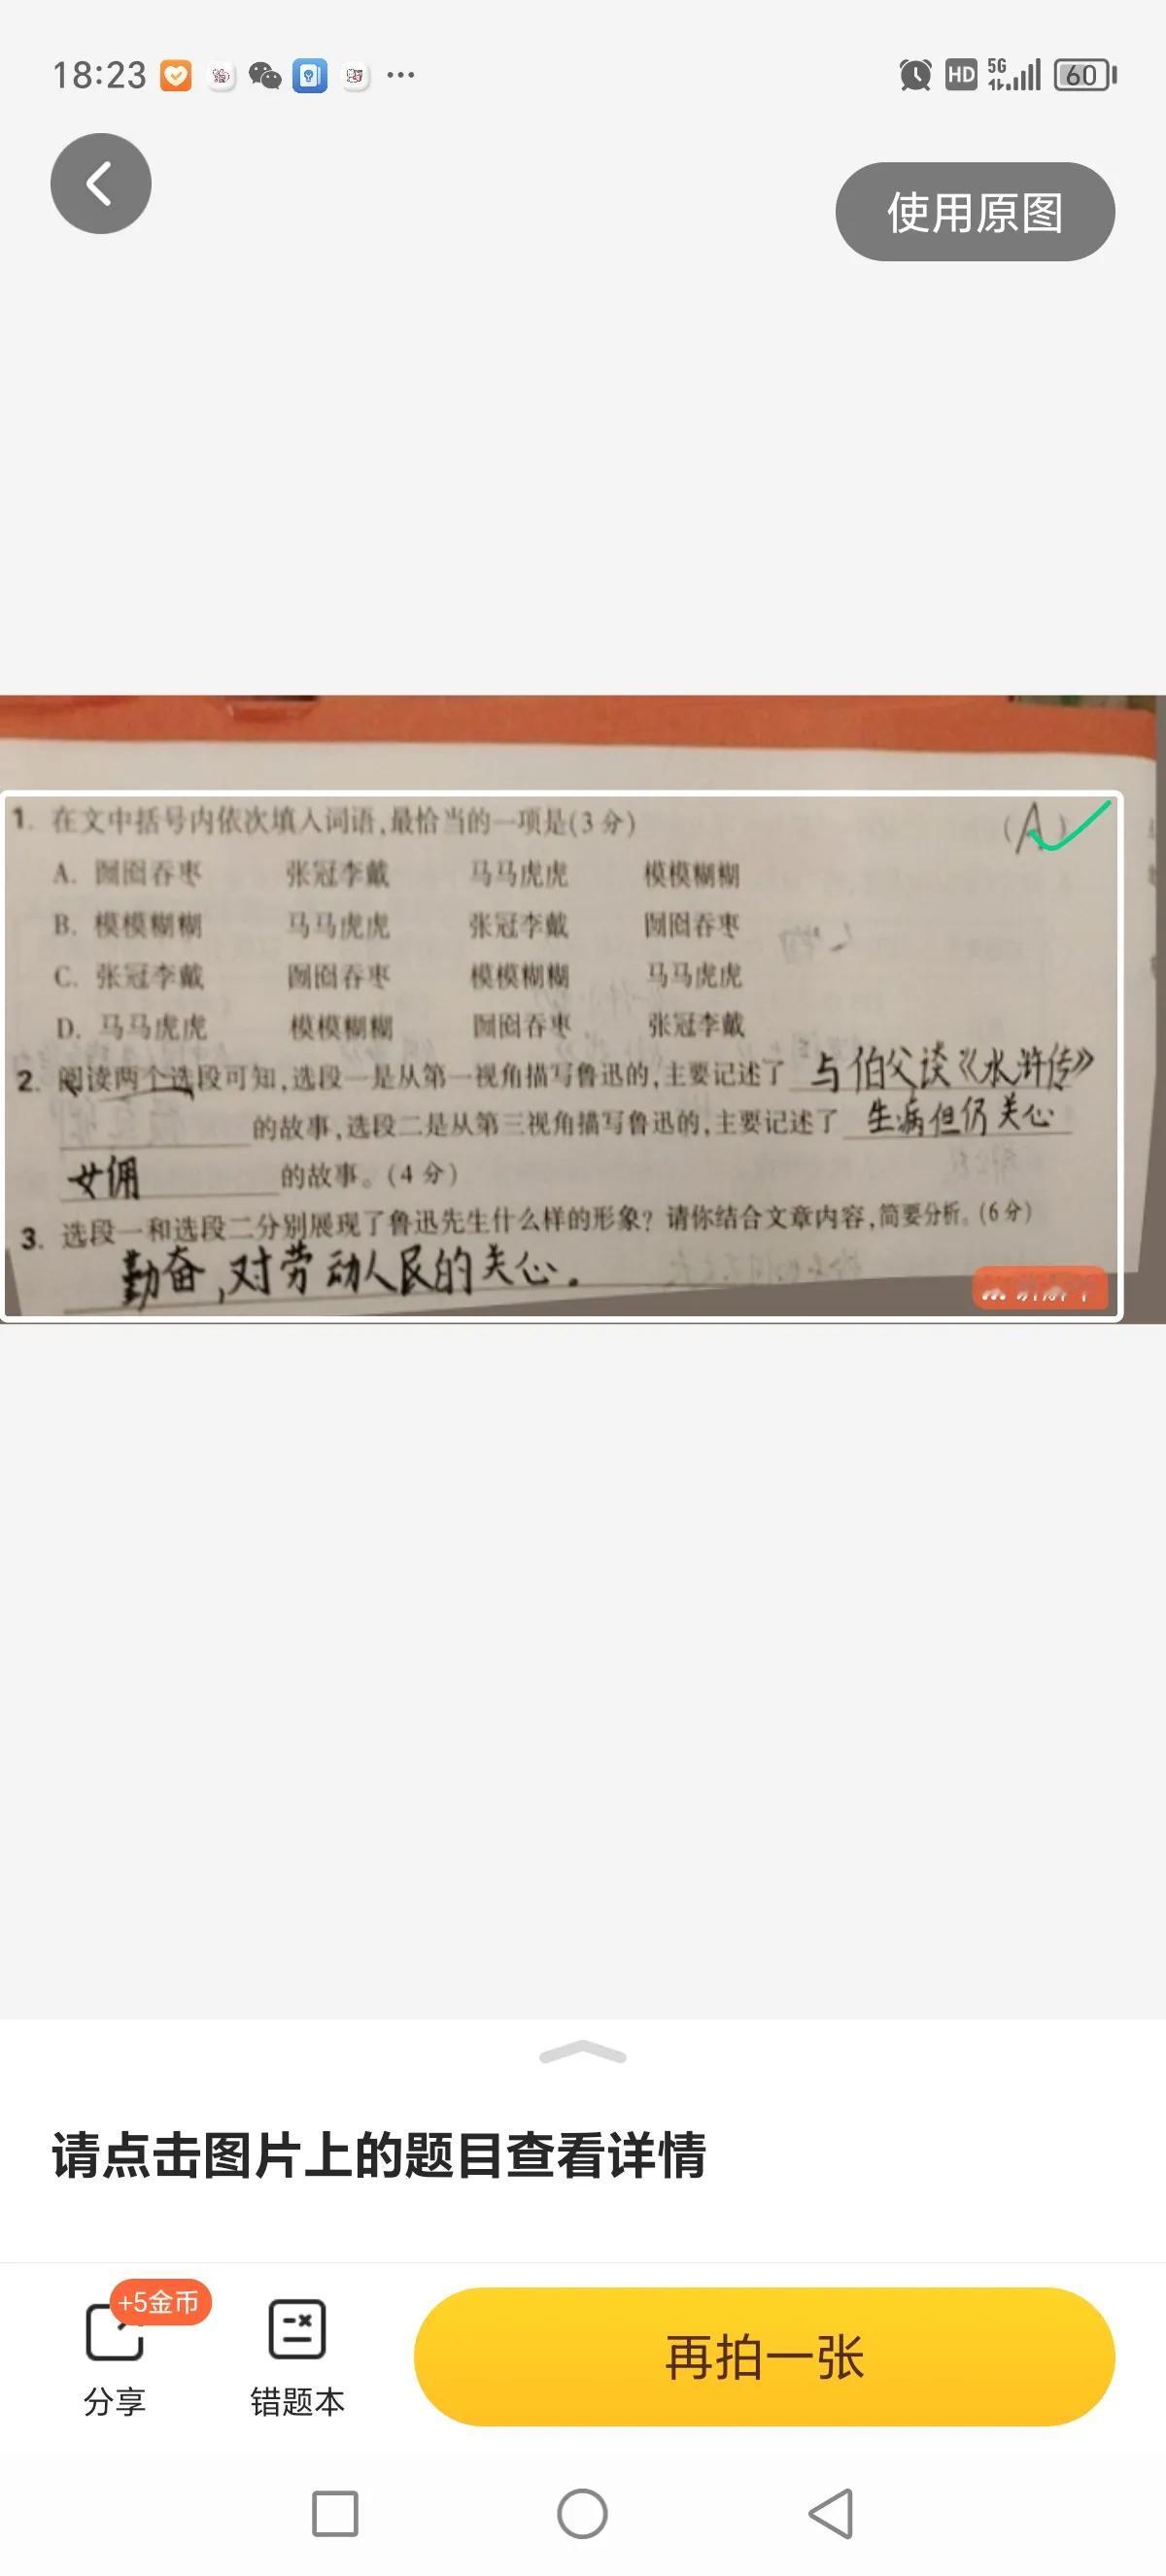 18:23
HD 5G 60
使用原图
1. 在文中括号内依次填入词语,最恰当的一项是(3分) (A)
A. 囫囵吞枣 张冠李戴 马马虎虎 模模糊糊
B. 模模糊糊 马马虎虎 张冠李戴 囫囵吞枣
C. 张冠李戴 囫囵吞枣 模模糊糊 马马虎虎
D. 马马虎虎 模模糊糊 囫囵吞枣 张冠李戴
2. 阅读两个选段可知,选段一是从第一视角描写鲁迅的,主要记述了 与伯父谈《水浒传》
的故事,选段二是从第三视角描写鲁迅的,主要记述了 生病但仍关心
女佣 的故事。(4分)
3. 选段一和选段二分别展现了鲁迅先生什么样的形象?请你结合文章内容,简要分析。(6分)
勤奋,对劳动人民的关心.
请点击图片上的题目查看详情
+5金币
分享 错题本 再拍一张